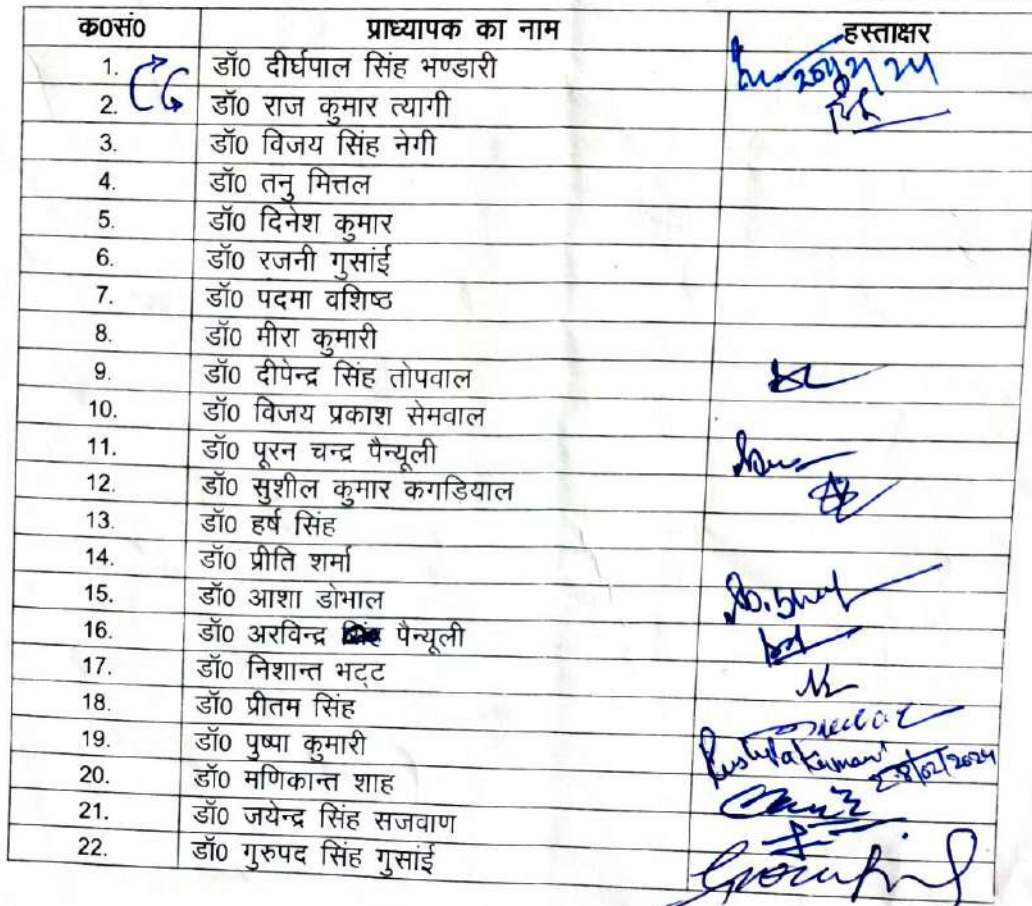 क०सं० प्राध्यापक का नाम हस्ताक्षर
1. डॉ0 दीर्घपाल सिंह भण्डारी
2. डॉ0 राज कुमार त्यागी
3. डॉ0 विजय सिंह नेगी
4. डॉ0 तनु मित्तल
5. डॉ0 दिनेश कुमार
6. डॉ0 रजनी गुसांई
7. डॉ0 पदमा वशिष्ठ
8. डॉ0 मीरा कुमारी
9. डॉ0 दीपेन्द्र सिंह तोपवाल
10. डॉ0 विजय प्रकाश सेमवाल
11. डॉ0 पूरन चन्द्र पैन्यूली
12. डॉ0 सुशील कुमार कगड़ियाल
13. डॉ0 हर्ष सिंह
14. डॉ0 प्रीति शर्मा
15. डॉ0 आशा डोभाल
16. डॉ0 अरविन्द्र पैन्यूली
17. डॉ0 निशान्त भट्ट
18. डॉ0 प्रीतम सिंह
19. डॉ0 पुष्पा कुमारी Pushpa Kumari 28/02/2024
20. डॉ0 मणिकान्त शाह
21. डॉ0 जयेन्द्र सिंह सजवाण
22. डॉ0 गुरुपद सिंह गुसांई